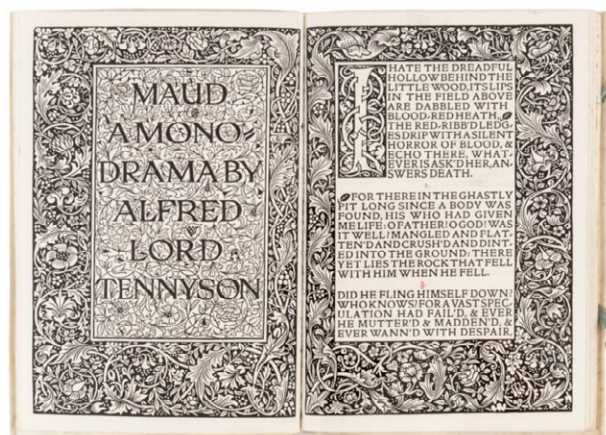 MAUD
A MONO-
DRAMA BY
ALFRED
LORD
TENNYSON
I HATE THE DREADFUL
HOLLOW BEHIND THE
LITTLE WOOD, ITS LIPS
IN THE FIELD ABOVE
ARE DABBLED WITH
BLOOD-RED HEATH,
THE RED-RIBB'D LEDG-
ES DRIP WITH A SILENT
HORROR OF BLOOD, &
ECHO THERE, WHAT-
EVER IS ASK'D HER, AN-
SWERS DEATH.
2.
FOR THERE IN THE GHASTLY
PIT LONG SINCE A BODY WAS
FOUND, HIS WHO HAD GIVEN
ME LIFE: O FATHER! O GOD! WAS
IT WELL! MANGLED AND FLAT-
TEN'D AND CRUSH'D AND DINT-
ED INTO THE GROUND: THERE
YET LIES THE ROCK THAT FELL
WITH HIM WHEN HE FELL.
3.
DID HE FLING HIMSELF DOWN?
WHO KNOWS? FOR A VAST SPEC-
ULATION HAD FAIL'D, & EVER
HE MUTTER'D & MADDEN'D, &
EVER WANN'D WITH DESPAIR,